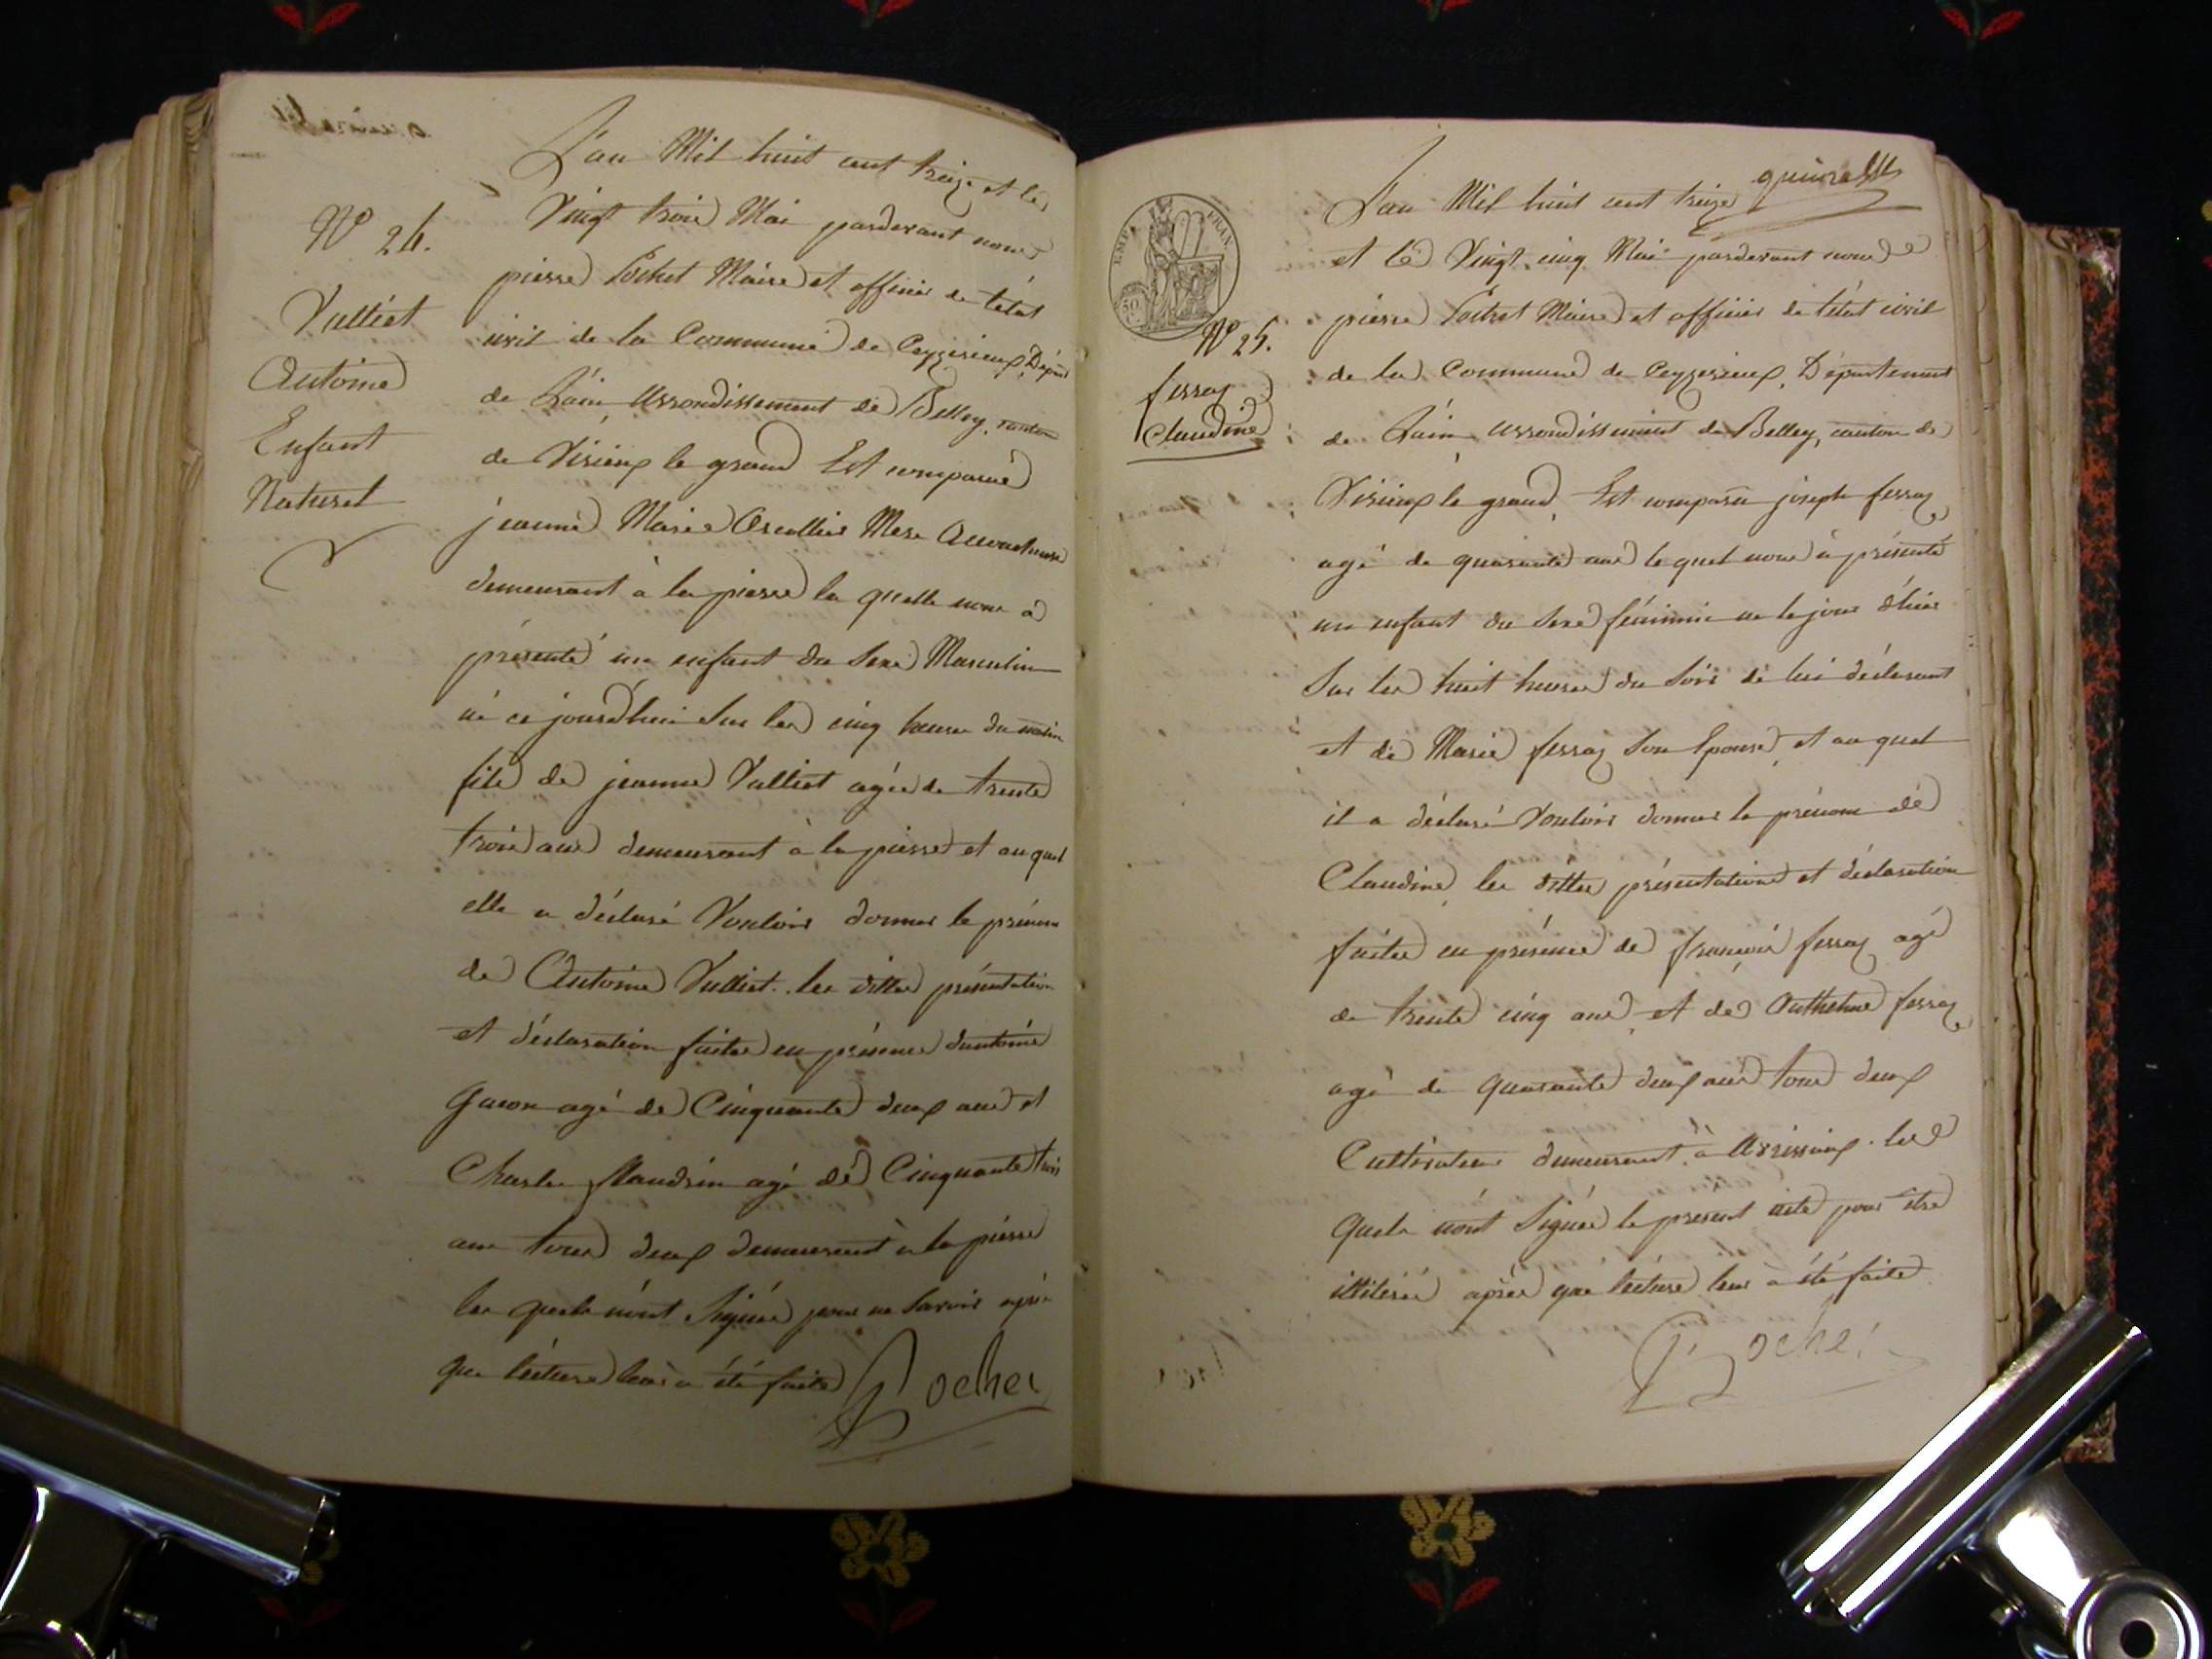 L'an Mil huit cent treize et le
Vingt trois Mai pardevant nous
pierre Pochet Maire et officier de l'état
civil de la Commune de Ceyzerieux, Dépmt
de L'ain, Arrondissement de Belley, canton
de Virieux le grand Est comparue
jeanne Marie Mere Accoucheuse
demeurant à la pierre la quelle nous à
présenté un enfant du Sexe Masculin
né ce jourd'hui Sur les cinq heures du matin
fils de jeanne Vulliet agée de trente
trois ans demeurant à la pierre et au quel
elle a déclaré Vouloir donner le prénom
de Antoine Vulliet. les dittes présentation
et déclaration faites en présence d'antoine
agé de Cinquante deux ans et
Charles agé de Cinquante trois
ans tous deux demeurent à la pierre
les quels n'ont Signés pour ne Savoir après
que lécture leur à été faite
Pochet
N° 24.
Vulliet
Antoine
Enfant
Naturel
L'an Mil huit cent treize
et le Vingt cinq Mai pardevant nous
pierre Pochet Maire et officier de l'état civil
de la Commune de Ceyzerieux, Département
de L'ain, arrondissement de Belley, canton de
Virieux le grand, Est comparu joseph ferraz
agé de quarante ans le quel nous à présenté
un enfant du Sexe féminin né le jour d'hier
Sur les huit heures du Soir de lui déclarant
et de Marie ferraz Son Epouse, et au quel
il a déclaré Vouloir donner le prénom de
Claudine, les dittes présentations et déclaration
faites en présence de françois ferraz agé
de trente cinq ans, et de Anthelme ferraz
agé de quarante deux ans tous deux
Cultivateurs demeurant à les
quels n'ont Signés le present acte pour être
illitérés après que lécture leur à été faite
Pochet
EMP. FRAN.
50
N° 25.
ferraz
Claudine